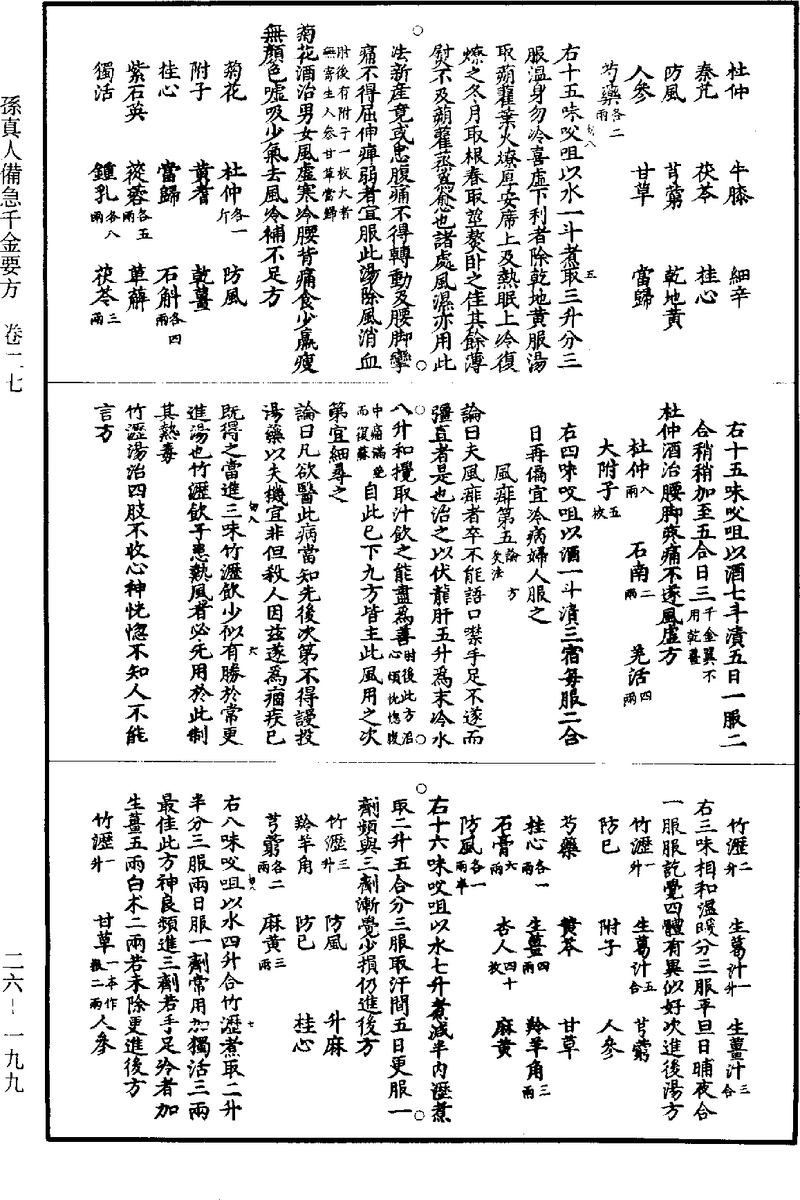 孫真人備急千金要方 卷二七
二六-一九九
杜仲 牛膝 細辛
秦艽 茯苓 桂心
防風 芎藭 乾地黃
人參 甘草 當歸
芍藥各二兩
右十五味㕮咀以水一斗煮取三升分三
服溫身勿冷喜虛下利者除乾地黃服湯
取蒴藋葉火燎厚安席上及熱眠上冷復
燎之冬月取根春取莖熬卧之佳其餘薄
熨不及蒴藋蒸爲愈也諸處風濕亦用此
法新產竟或患腹痛不得轉動及腰脚攣
痛不得屈伸痹弱者宜服此湯除風消血
肘後有附子一枚大者無寄生人參甘草當歸
菊花酒治男女風虛寒冷腰背痛食少羸瘦
無顏色噓吸少氣去風冷補不足方
菊花 杜仲各一斤 防風
附子 黃耆 乾薑
桂心 當歸 石斛各四兩
紫石英 蓯蓉各五兩 萆薢
獨活 鍾乳各八兩 茯苓三兩
右十五味㕮咀以酒七斗漬五日一服二
合稍稍加至五合日三千金翼不用乾薑
杜仲酒治腰脚疼痛不遂風虛方
杜仲八兩 石南二兩 羌活四兩
大附子五枚
右四味㕮咀以酒一斗漬三宿每服二合
日再偏宜冷病婦人服之
風痱第五論 方 灸法
論曰夫風痱者卒不能語口噤手足不遂而
彊直者是也治之以伏龍肝五升爲末冷水
八升和攪取汁飲之能盡爲善肘後此方治心煩恍惚腹中痛滿絶而復蘇
自此已下九方皆主此風用之次
第宜細尋之
論曰凡欲醫此病當知先後次第不得謾投
湯藥以失機宜非但殺人因茲遂爲痼疾已
既得之當進三味竹瀝飲少似有勝於常更
進湯也竹瀝飲子患熱風者必先用於此制
其熱毒
竹瀝湯治四肢不收心神恍惚不知人不能
言方
竹瀝二升 生葛汁一升 生薑汁三合
右三味相和溫暖分三服平旦日晡夜各
一服服訖覺四體有異似好次進後湯方
竹瀝一升 生葛汁五合 芎藭
防已 附子 人參
芍藥 黃芩 甘草
桂心各一兩 生薑四兩 羚羊角三兩
石膏六兩 杏人四十枚 麻黃
防風各一兩半
右十六味㕮咀以水七升煮減半內瀝煮
取二升五合分三服取汗間五日更服一
劑頻與三劑漸覺少損仍進後方
竹瀝三升 防風 升麻
羚羊角 防已 桂心
芎藭各二兩 麻黃三兩
右八味㕮咀以水四升合竹瀝煮取二升
半分三服兩日服一劑常用加獨活三兩
最佳此方神良頻進三劑若手足冷者加
生薑五兩白朮二兩若未除更進後方
竹瀝一升 甘草一本作椒二兩 人參